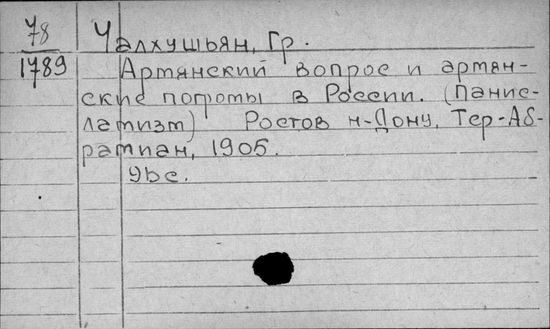 78
1789
Чалхушьян, Гр.
Армянский вопрос и армян-
ские погромы в России. (Панис-
ламизм) Ростов н-Дону, Тер-Аб-
рамиан, 1905.
96 с.